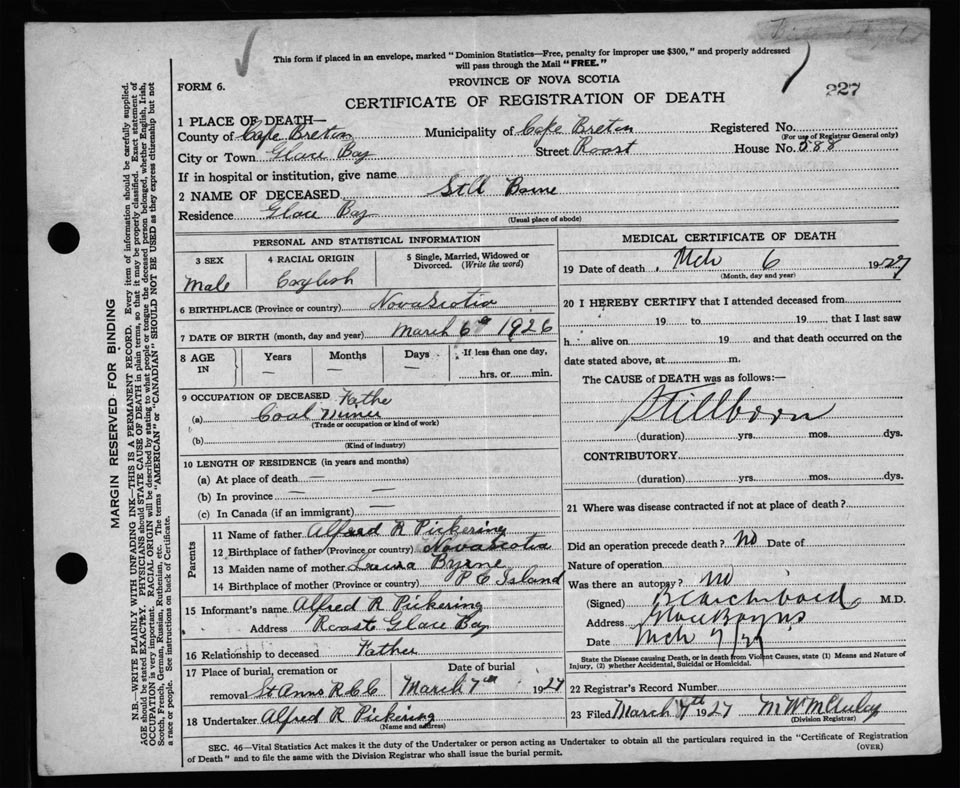 This form if placed in an envelope, marked "Dominion Statistics—Free, penalty for improper use $300," and properly addressed
will pass through the Mail "FREE."
FORM 6.
PROVINCE OF NOVA SCOTIA
227
CERTIFICATE OF REGISTRATION OF DEATH
1 PLACE OF DEATH—
County of Cape Breton Municipality of Cape Breton Registered No.
(For use of Registrar General only)
City or Town Glace Bay Street Roost House No. 588
If in hospital or institution, give name
2 NAME OF DECEASED St A Borne
Residence Glace Bay
(Usual place of abode)
PERSONAL AND STATISTICAL INFORMATION
3 SEX 4 RACIAL ORIGIN 5 Single, Married, Widowed or
Divorced. (Write the word)
Male English
6 BIRTHPLACE (Province or country) Nova Scotia
7 DATE OF BIRTH (month, day and year) March 6th 1926
8 AGE IN Years Months Days If less than one day,
— — — hrs. or min.
9 OCCUPATION OF DECEASED Fathe
(a) Coal Miner
(Trade or occupation or kind of work)
(b)
(Kind of industry)
10 LENGTH OF RESIDENCE (in years and months)
(a) At place of death —
(b) In province —
(c) In Canada (if an immigrant) —
Parents
11 Name of father Alfred R Pickering
12 Birthplace of father (Province or country) Nova Scotia
13 Maiden name of mother Laura Byrne
14 Birthplace of mother (Province or country) P E Island
15 Informant's name Alfred R Pickering
Address Roost Glace Bay
16 Relationship to deceased Father
17 Place of burial, cremation or Date of burial
removal St Anns R C C March 7th 1927
18 Undertaker Alfred R Pickering
(Name and address)
MEDICAL CERTIFICATE OF DEATH
19 Date of death Mch 6 1927
(Month, day and year)
20 I HEREBY CERTIFY that I attended deceased from
19 to 19 , that I last saw
h alive on 19 and that death occurred on the
date stated above, at m.
The CAUSE of DEATH was as follows:—
Stillborn
(duration) yrs. mos. dys.
CONTRIBUTORY
(duration) yrs. mos. dys.
21 Where was disease contracted if not at place of death?
Did an operation precede death? No Date of
Nature of operation
Was there an autopsy? No
(Signed) M.D.
Address
Date Mch 7/27
State the Disease causing Death, or in death from Violent Causes, state (1) Means and Nature of
Injury, (2) whether Accidental, Suicidal or Homicidal.
22 Registrar's Record Number
23 Filed March 7th 1927
(Division Registrar)
SEC. 46—Vital Statistics Act makes it the duty of the Undertaker or person acting as Undertaker to obtain all the particulars required in the "Certificate of Registration
of Death" and to file the same with the Division Registrar who shall issue the burial permit.
(OVER)
MARGIN RESERVED FOR BINDING
N.B.—WRITE PLAINLY WITH UNFADING INK—THIS IS A PERMANENT RECORD. Every item of information should be carefully supplied.
AGE should be stated EXACTLY. PHYSICIANS should STATE CAUSE OF DEATH in plain terms, so that it may be properly classified. Exact statement of
OCCUPATION is very important. RACIAL ORIGIN will be described by stating to what people or tongue the deceased person belonged, whether English, Irish,
Scotch, French, German, Russian, Ruthenian, etc. The terms "AMERICAN" or "CANADIAN" SHOULD NOT BE USED as they express citizenship but not
a race or people. See instructions on back of Certificate.